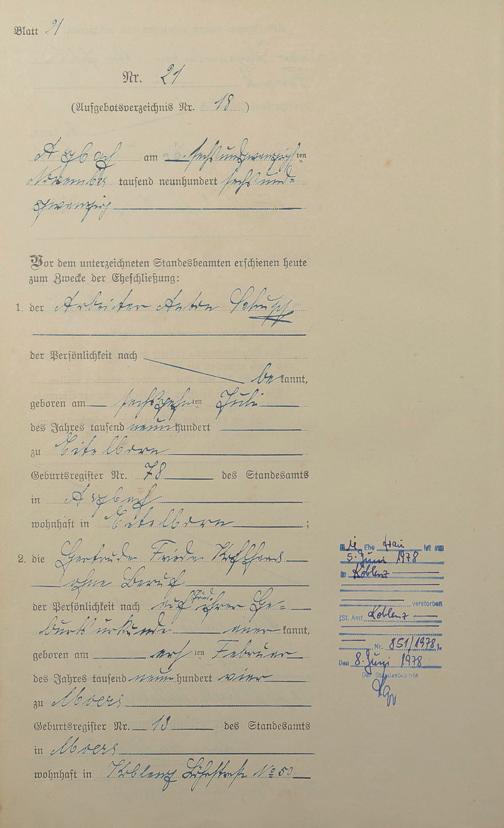 Blatt 21
Nr. 21
(Aufgebotsverzeichnis Nr. 18)
Arzbach am sechsundzwanzigsten
November tausend neunhundert sechsund-
zwanzig
Vor dem unterzeichneten Standesbeamten erschienen heute
zum Zwecke der Eheschließung:
1. der Arbeiter Anton
der Persönlichkeit nach
bekannt,
geboren am sechszehnten Juli
des Jahres tausend neunhundert
zu Eitelborn
Geburtsregister Nr. 78 des Standesamts
in Arzbach
wohnhaft in Eitelborn;
2. die Gertrude Frieda
ohne Beruf
der Persönlichkeit nach auf Grund ihrer Ge-
burtsurkunde anerkannt,
geboren am ersten Februar
des Jahres tausend neunhundert vier
zu Moers
Geburtsregister Nr. 13 des Standesamts
in Moers
wohnhaft in Koblenz No 50
Die Ehefrau ist am
5. Juni 1978
in Koblenz
verstorben
(St. Amt Koblenz
Nr. 851/1978).
Den 8. Juni 1978
Der Standesbeamte